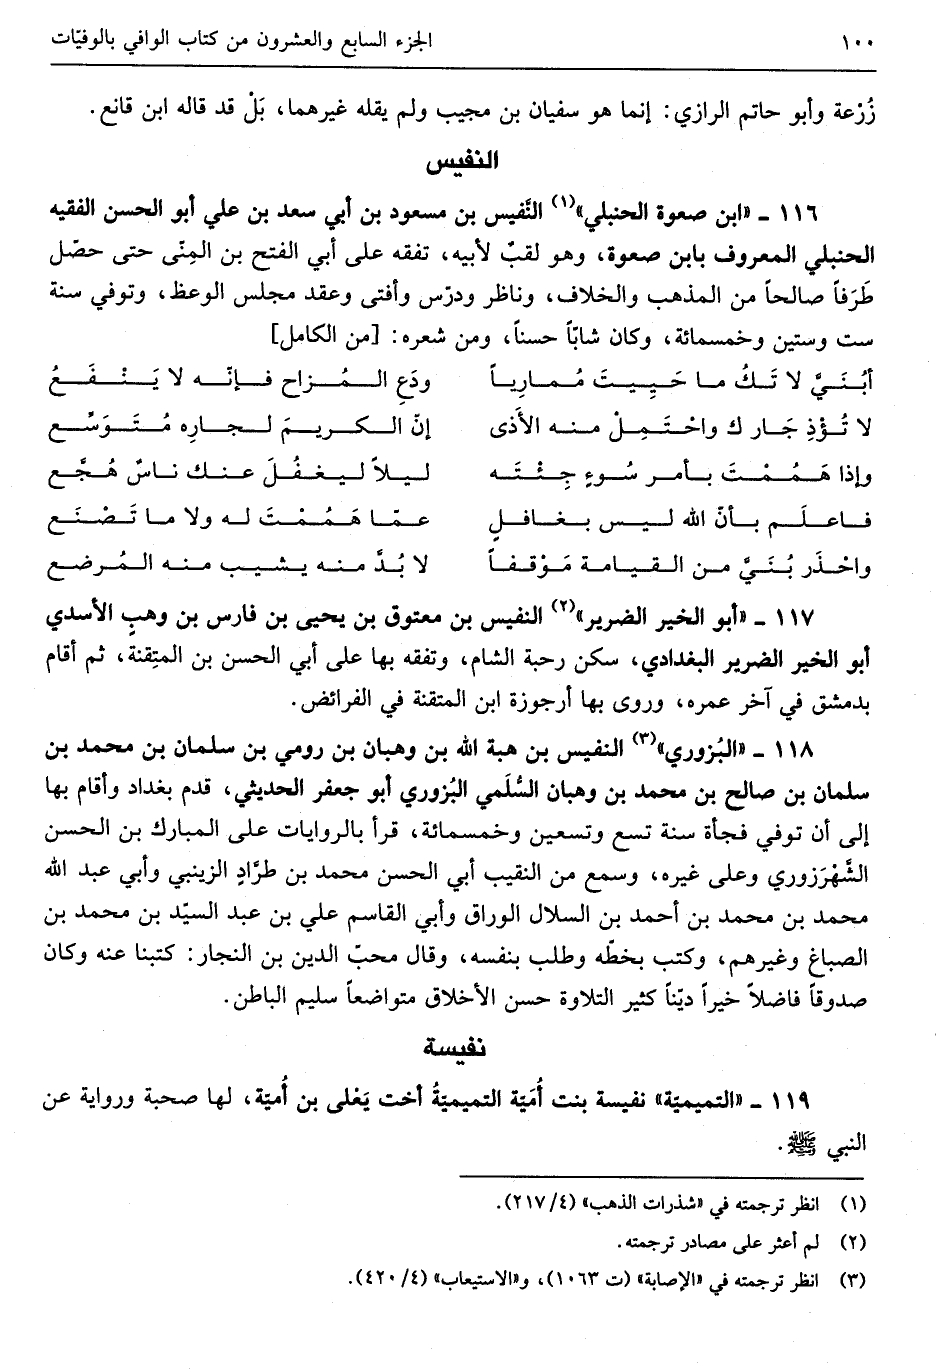 ١٠٠ الجزء السابع والعشرون من كتاب الوافي بالوفيّات
زُرْعة وأبو حاتم الرازي: إنما هو سفيان بن مجيب ولم يقله غيرهما، بَلْ قد قاله ابن قانع.
النفيس
١١٦ ـ «ابن صعوة الحنبلي»(١) النَّفيس بن مسعود بن أبي سعد بن علي أبو الحسن الفقيه
الحنبلي المعروف بابن صعوة، وهو لقبٌ لأبيه، تفقه على أبي الفتح بن المِنّى حتى حصّل
طَرَفاً صالحاً من المذهب والخلاف، وناظر ودرّس وأفتى وعقد مجلس الوعظ، وتوفي سنة
ست وستين وخمسمائة، وكان شابّاً حسناً، ومن شعره: [من الكامل]
أبُنَيَّ لا تَكُ ما حَيِيتَ مُمارياً ودَعِ المُزاح فإنّه لا يَنْفَعُ
لا تُؤْذِ جَارك واحْتَمِلْ منه الأذَى إنّ الكريمَ لجاره مُتَوَسِّع
وإذا هَمُمْتَ بأمر سُوءٍ جِئْتَه ليلاً ليغفُلَ عنك ناسٌ هُجَّع
فاعلَم بأنّ الله ليس بغافلٍ عمّا هَمُمْتَ له ولا ما تَصْنَع
واحْذَر بُنَيَّ من القيامة مَوْقفاً لا بُدَّ منه يشيب منه المُرضع
١١٧ ـ «أبو الخير الضرير»(٢) النفيس بن معتوق بن يحيى بن فارس بن وهبٍ الأسدي
أبو الخير الضرير البغدادي، سكن رحبة الشام، وتفقه بها على أبي الحسن بن المتِقنة، ثم أقام
بدمشق في آخر عمره، وروى بها أرجوزة ابن المتقنة في الفرائض.
١١٨ ـ «البُزوري»(٣) النفيس بن هبة الله بن وهبان بن رومي بن سلمان بن محمد بن
سلمان بن صالح بن محمد بن وهبان السُّلَمي البُزوري أبو جعفر الحديثي، قدم بغداد وأقام بها
إلى أن توفي فجأة سنة تسع وتسعين وخمسمائة، قرأ بالروايات على المبارك بن الحسن
الشَّهْرَزوري وعلى غيره، وسمع من النقيب أبي الحسن محمد بن طرَّادٍ الزينبي وأبي عبد الله
محمد بن محمد بن أحمد بن السلال الوراق وأبي القاسم علي بن عبد السيّد بن محمد بن
الصباغ وغيرهم، وكتب بخطّه وطلب بنفسه، وقال محبّ الدين بن النجار: كتبنا عنه وكان
صدوقاً فاضلاً خيراً ديّناً كثير التلاوة حسن الأخلاق متواضعاً سليم الباطن.
نفيسة
١١٩ ـ «التميميّة» نفيسة بنت أُمَيّة التميميةُ أخت يَعْلى بن أُميّة، لها صحبة ورواية عن
النبي ﷺ.
(١) انظر ترجمته في «شذرات الذهب» (٢١٧/٤).
(٢) لم أعثر على مصادر ترجمته.
(٣) انظر ترجمته في «الإصابة» (ت ١٠٦٣)، و«الاستيعاب» (٤٢٠/٤).